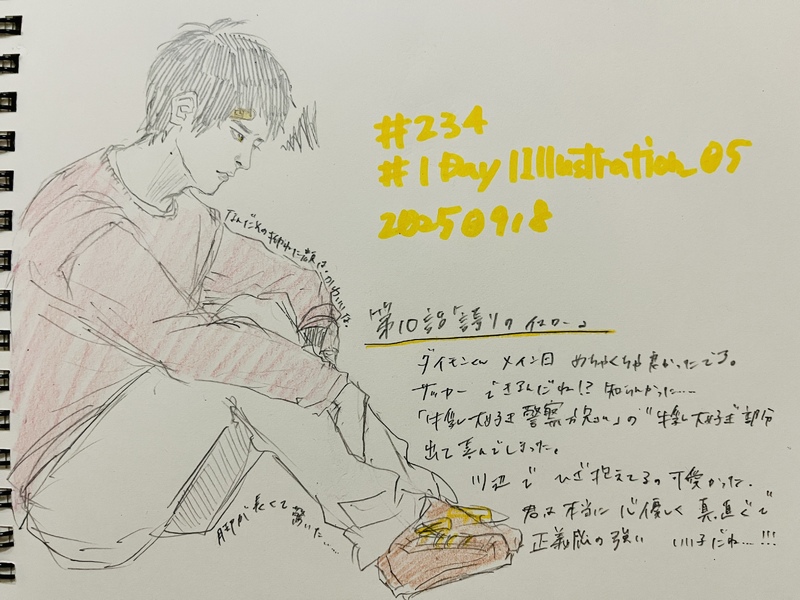 #234
#1Day1Illustration 05
20250918
なんだその拗ねた顔は、かわいいな。
第10話「誇りのイエロー」
ダイモンくん メイン回 めちゃくちゃ良かったです。
サッカーできるんだね!? 知らんかった……
「体操大好き警察官」の"体操大好き"部分
出て喜んでしまった。
川辺で ひざ抱えてるの可愛かった。
君は本当に心優しく真直ぐで
正義感の強い いい子だね……!!!
脚が長くて驚いた……